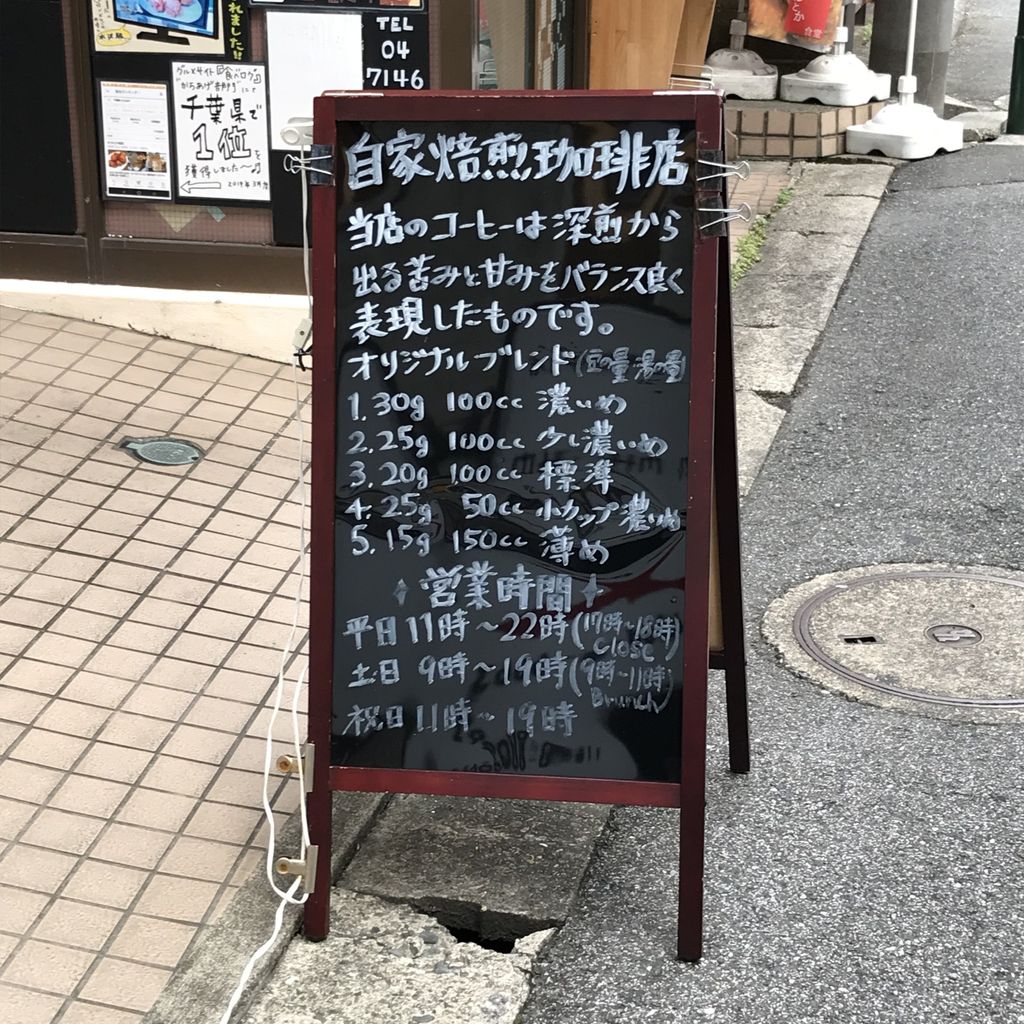 れました!!
TEL
04
7146
グルメサイト『食べログ』
からあげ部門にて
千葉県で
1位を
獲得しました〜♪
自家焙煎珈琲店
当店のコーヒーは深煎から
出る苦みと甘みをバランス良く
表現したものです。
オリジナルブレンド(豆の量・湯の量)
1.30g 100cc 濃いめ
2.25g 100cc 少し濃いめ
3.20g 100cc 標準
4.25g 50cc 小カップ濃いめ
5.15g 150cc 薄め
営業時間
平日11時〜22時(17時〜18時)
Close
土日 9時〜19時(9時〜11時)
Brunch
祝日11時〜19時